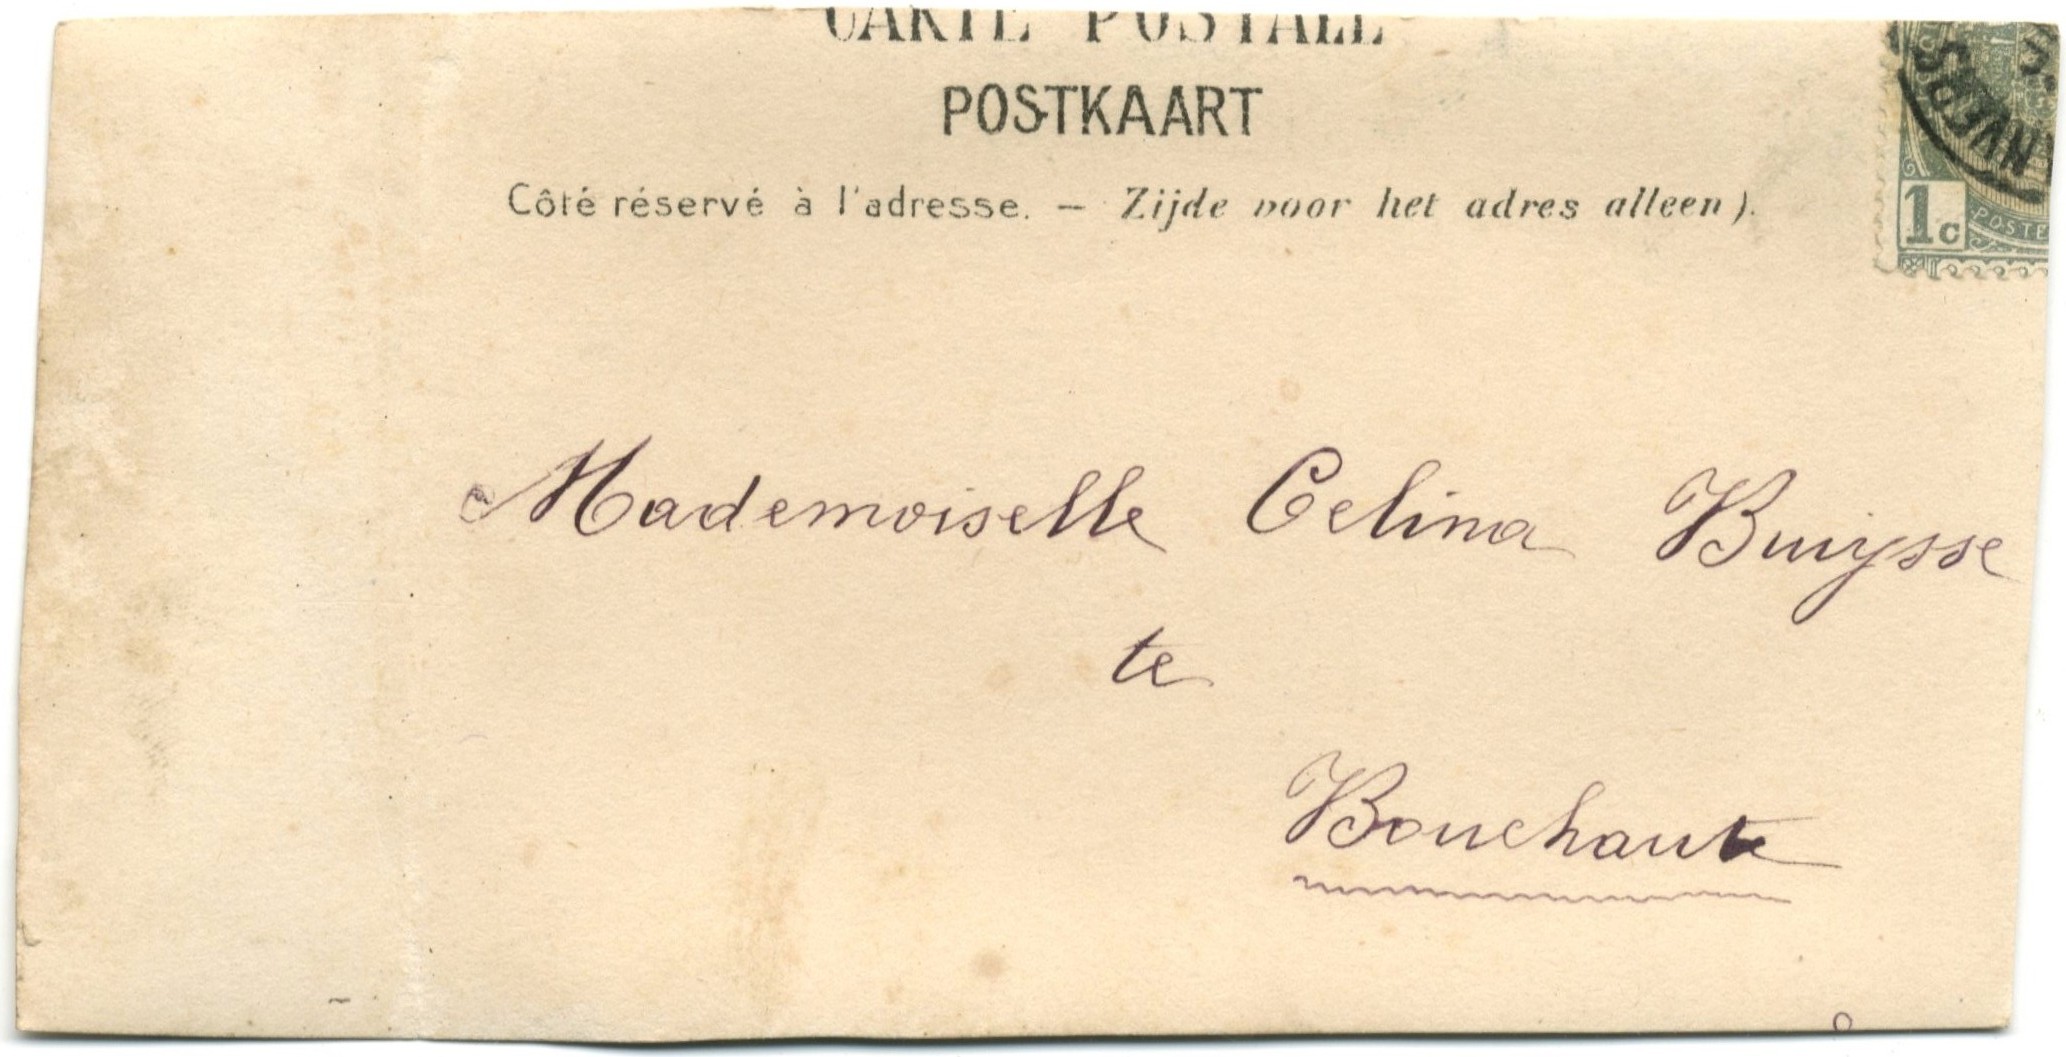 CARTE POSTALE
POSTKAART
Côté réservé à l'adresse. — Zijde voor het adres alleen).
NVERS
1c
POSTE
Mademoiselle Celina Buysse
te
Bouchaute